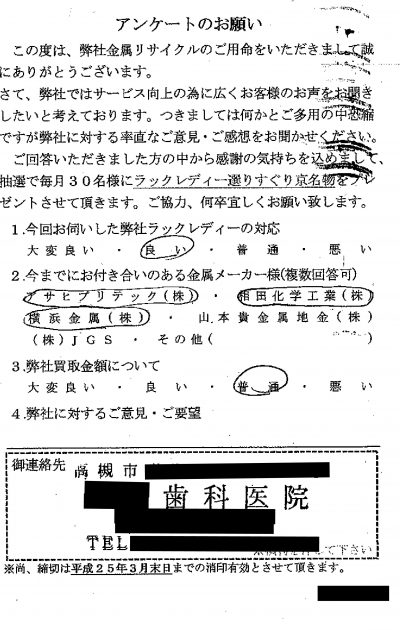 アンケートのお願い
この度は、弊社金属リサイクルのご用命をいただきまして誠
にありがとうございます。
さて、弊社ではサービス向上の為に広くお客様のお声をお聞き
したいと考えております。つきましては何かとご多用の中恐縮
ですが弊社に対する率直なご意見・ご感想をお聞かせください。
ご回答いただきました方の中から感謝の気持ちを込めまして、
抽選で毎月30名様にラックレディー選りすぐり京名物をプレ
ゼントさせて頂きます。ご協力、何卒宜しくお願い致します。
1.今回お伺いした弊社ラックレディーの対応
大変良い ・ 良い ・ 普通 ・ 悪い
2.今までにお付き合いのある金属メーカー様(複数回答可)
アサヒプリテック(株) ・ 相田化学工業(株)
横浜金属(株) ・ 山本貴金属地金(株)
(株)JGS ・ その他( )
3.弊社買取金額について
大変良い ・ 良い ・ 普通 ・ 悪い
4.弊社に対するご意見・ご要望
御連絡先 高槻市
歯科医院
TEL
下さい
※尚、締切は平成25年3月末日までの消印有効とさせて頂きます。